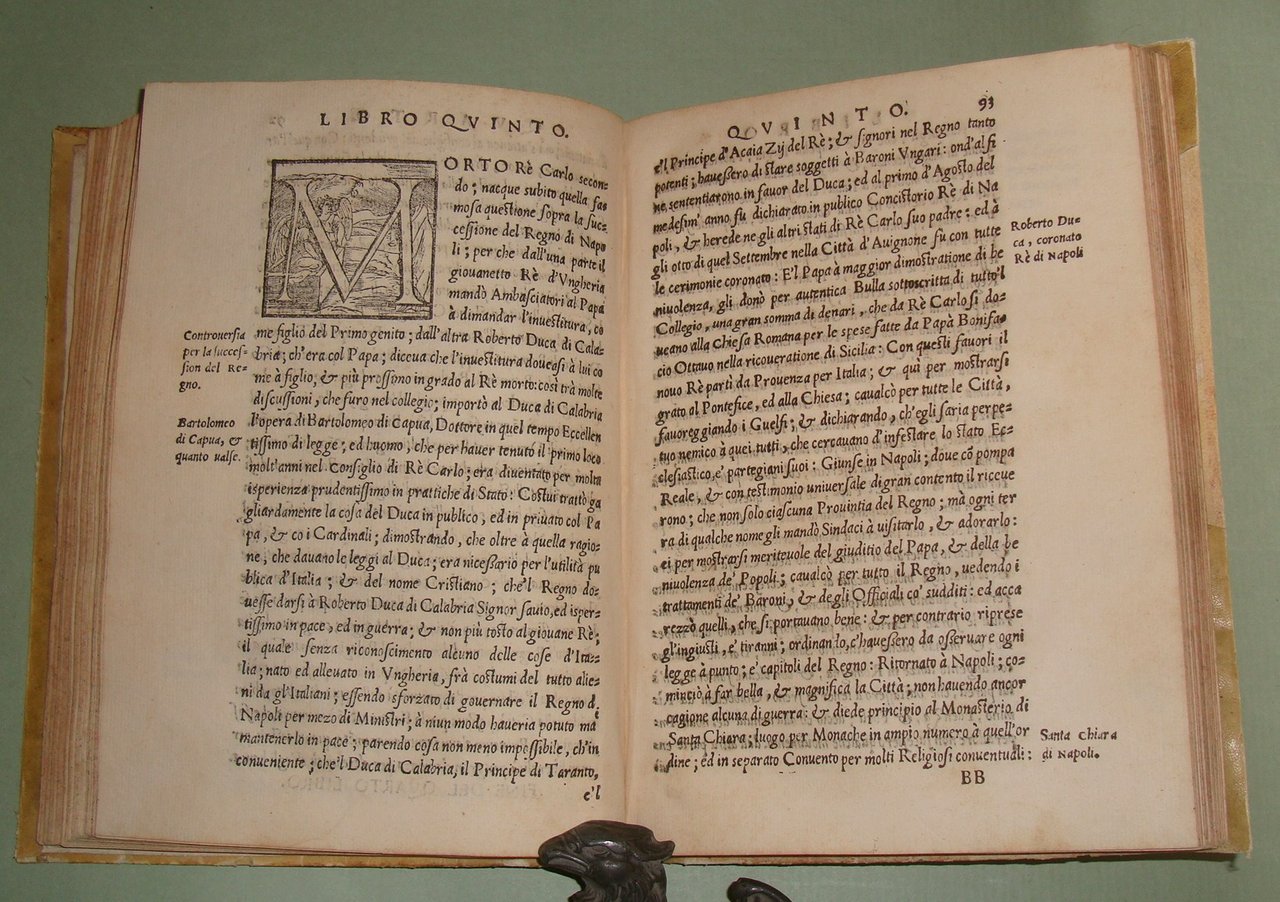 LIBRO QVINTO.
MORTO Rè Carlo secon-
do ; nacque subito quella fa-
mosa questione sopra la suc-
cessione del Regno di Napo
li ; per che dall'una parte il
giouanetto Rè d'Vngheria
mandò Ambasciatori al Papa
à dimandar l'inuestitura, co
Controuersia
per la succes-
sion del Re-
gno.
me figlio del Primogenito ; dall'altra Roberto Duca di Cala-
bria ; ch'era col Papa ; diceua che l'inuestitura doueasi à lui co
me à figlio, & più prossimo in grado al Rè morto: così trà molte
discussioni, che furo nel collegio ; importò al Duca di Calabria
Bartolomeo
di Capua, &
quanto ualse.
l'opera di Bartolomeo di Capua, Dottore in quel tempo Eccellen
tissimo di legge ; ed huomo, che per hauer tenuto il primo loco
molt'anni nel Consiglio di Rè Carlo ; era diuentato per molta
isperienza prudentissimo in prattiche di Stato : Costui trattò ga
gliardamente la cosa del Duca in publico, ed in priuato col Pa
pa, & co i Cardinali ; dimostrando, che oltre à quella ragio-
ne, che dauano le leggi al Duca ; era nicessario per l'utilità pu
blica d'Italia ; & del nome Cristiano ; che'l Regno do-
uesse darsi à Roberto Duca di Calabria Signor sauio, ed isper-
tissimo in pace, ed in guerra ; & non più tosto al giouane Rè ;
il quale senza riconoscimento alcuno delle cose d'Ita-
lia ; nato ed alleuato in Vngheria, frà costumi del tutto alie-
ni da gl'Italiani ; essendo sforzato di gouernare il Regno di
Napoli per mezo di Ministri ; à niun modo haueria potuto mà
mantenerlo in pace ; parendo cosa non meno impossibile, ch'in
conueniente ; che'l Duca di Calabria, il Principe di Taranto,
e'l
QVINTO. 93
e'l Principe d'Acaia Zij del Rè ; & signori nel Regno tanto
potenti ; hauessero di stare soggetti à Baroni Vngari : ond'al fi
ne, sentent­iarono in fauor del Duca ; ed al primo d'Agosto del
medesim' anno fù dichiarato in publico Concistorio Rè di Na
poli, & herede ne gli altri stati di Rè Carlo suo padre : ed à
gli otto di quel Settembre nella Città d'Auignone fu con tutte
le cerimonie coronato : E'l Papa à maggior dimostratione di be
niuolenza, gli donò per autentica Bulla sottoscritta di tutto'l
Roberto Du-
ca, coronato
Rè di Napoli
Collegio, una gran somma di denari, che da Rè Carlo si do-
ueano alla Chiesa Romana per le spese fatte da Papà Bonifa-
cio Ottauo nella ricoueratione di Sicilia : Con questi fauori il
nouo Rè partì da Prouenza per Italia ; & quì per mostrarsi
grato al Pontefice, ed alla Chiesa ; caualcò per tutte le Città,
fauoreggiando i Guelfi ; & dichiarando, ch'egli saria perpe-
tuo nemico à quei tutti, che cercauano d'infestare lo stato Ec-
clesiastico, e' partegiani suoi : Giunse in Napoli ; doue cõ pompa
Reale, & con testimonio uniuersale di gran contento il riceue
rono ; che non solo ciascuna Prouintia del Regno ; mà ogni ter
ra di qualche nome gli mandò Sindaci à uisitarlo, & adorarlo :
ei per mostrarsi meriteuole del giuditio del Papa, & della be
niuolenza de' Popoli ; caualcò per tutto il Regno, uedendo i
trattamenti de' Baroni, & de gli Officiali co' sudditi : ed acca
rezzò quelli, che si portauano bene : & per contrario riprese
gl'ingiusti, e' tiranni ; ordinando, c'hauessero da osseruare ogni
legge à punto ; e' capitoli del Regno : Ritornato à Napoli ; co-
minciò à far bella, & magnifica la Città ; non hauendo ancor
cagione alcuna di guerra : & diede principio al Monasterio di
Santa Chiara ; luogo per Monache in ampio numero à quell'or
dine ; ed in separato Conuento per molti Religiosi conuentuali :
Santa Chiara
di Napoli.
BB